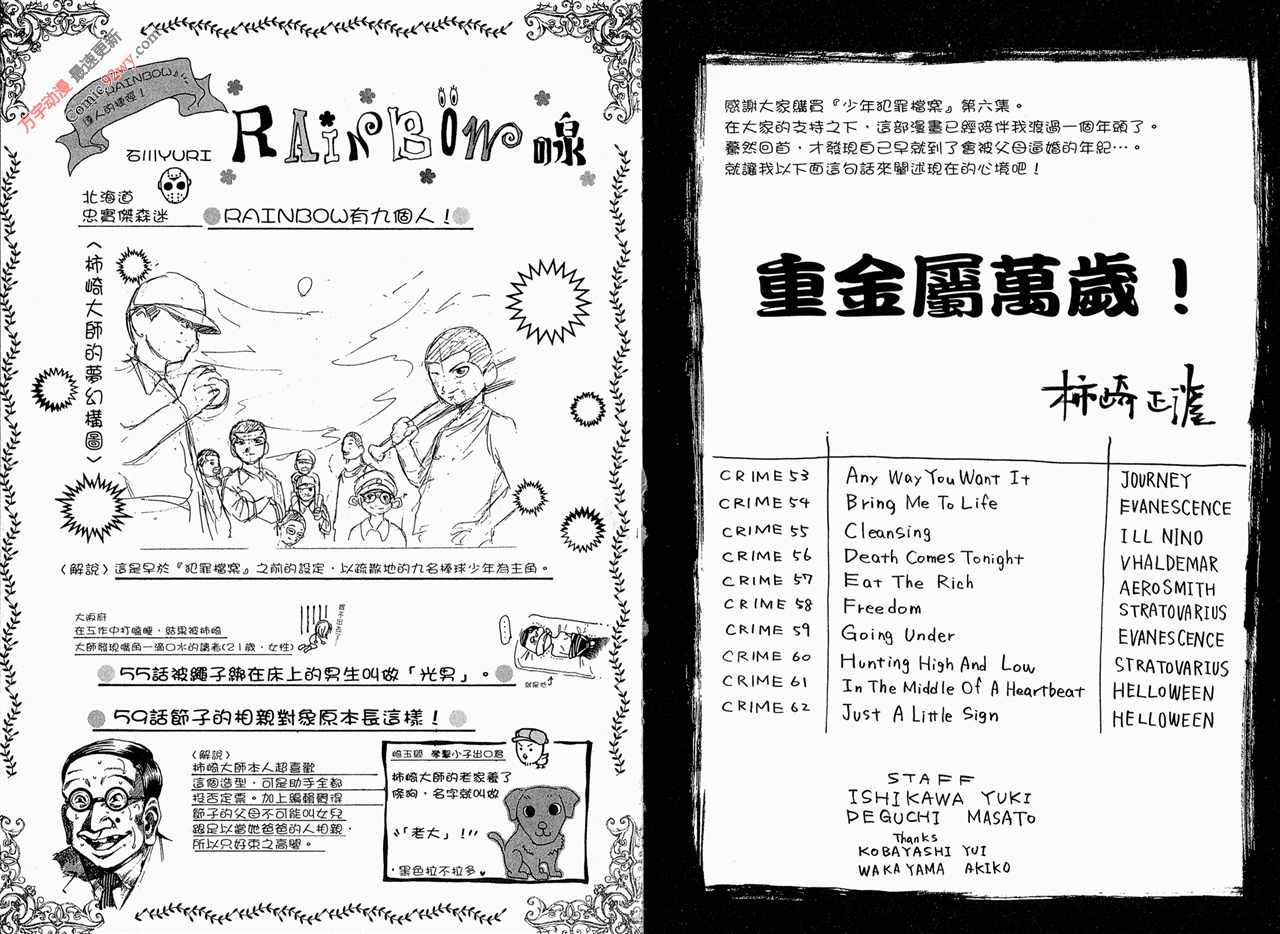 万宇动漫 最速更新
Comic.92wy.com
RAINBOW
達人的捷徑！
石川YURI
RAINBOW
北海道
忠實傑森迷
RAINBOW有九個人！
〈柿崎大師的夢幻構圖〉
〈解說〉這是早於『犯罪檔案』之前的設定，以疏散地的九名棒球少年為主角。
大阪府
在工作中打瞌睡，結果被柿崎
大師發現嘴角一滴口水的讀者(21歲，女性)
55話被繩子綁在床上的男生叫做「光男」。
就是他
59話節子的相親對象原本長這樣！
〈解說〉
柿崎大師本人超喜歡
這個造型，可是助手全都
投否定票。加上編輯覺得
節子的父母不可能叫女兒
跟足以當她爸爸的人相親，
所以只好束之高閣。
崎玉縣 拳擊小子出口君
柿崎大師的老家養了
條狗，名字就叫做
「老大」！
・黑色拉不拉多
感謝大家購買『少年犯罪檔案』第六集。
在大家的支持之下，這部漫畫已經陪伴我渡過一個年頭了。
驀然回首，才發現自己早就到了會被父母逼婚的年紀…。
就讓我以下面這句話來闡述現在的心境吧！
重金屬萬歲！
柿崎正澄
CRIME 53 Any Way You Want It JOURNEY
CRIME 54 Bring Me To Life EVANESCENCE
CRIME 55 Cleansing ILL NINO
CRIME 56 Death Comes Tonight VHALDEMAR
CRIME 57 Eat The Rich AEROSMITH
CRIME 58 Freedom STRATOVARIUS
CRIME 59 Going Under EVANESCENCE
CRIME 60 Hunting High And Low STRATOVARIUS
CRIME 61 In The Middle Of A Heartbeat HELLOWEEN
CRIME 62 Just A Little Sign HELLOWEEN
STAFF
ISHIKAWA YUKI
DEGUCHI MASATO
Thanks
KOBAYASHI YUI
WAKAYAMA AKIKO